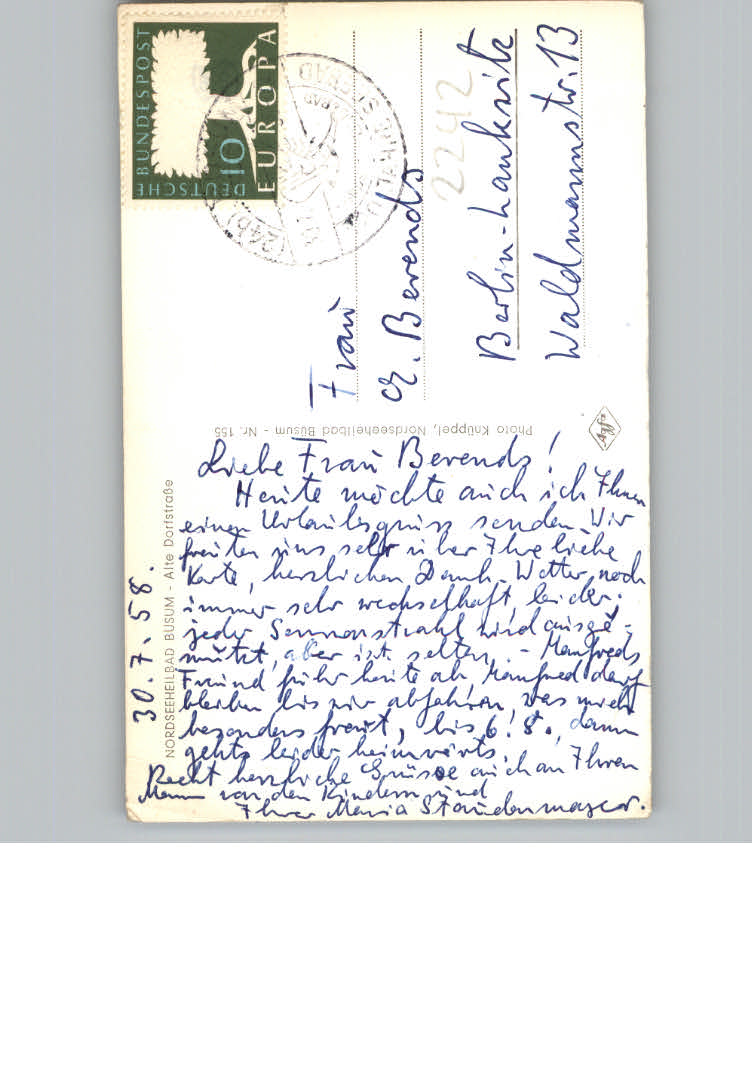 DEUTSCHE BUNDESPOST
10
EUROPA
(24b)
2242
Frau
Berends
Berlin-Lankwitz
Waldmannstr. 13
Photo Knüppel, Nordseeheilbad Büsum - Nr. 155
NORDSEEHEILBAD BÜSUM - Alte Dorfstraße
30.7.58.
Liebe Frau Berends!
Heute möchte auch ich Ihnen
einen Urlaubsgruss senden. Wir
freuten uns sehr über Ihre liebe
Karte, herzlichen Dank. Wetter noch
immer sehr wechselhaft, leider.
jeder Sonnenstrahl wird ausge-
nützt, aber ist selten. - Manfreds
Freund fuhr heute ab, Manfred darf
bleiben bis wir abfahren, was mich
besonders freut, bis 6.8., dann
gehts leider heimwärts.
Recht herzliche Grüsse auch an Ihren
Mann von den Kindern und
Ihrer Maria Staudenmayer.